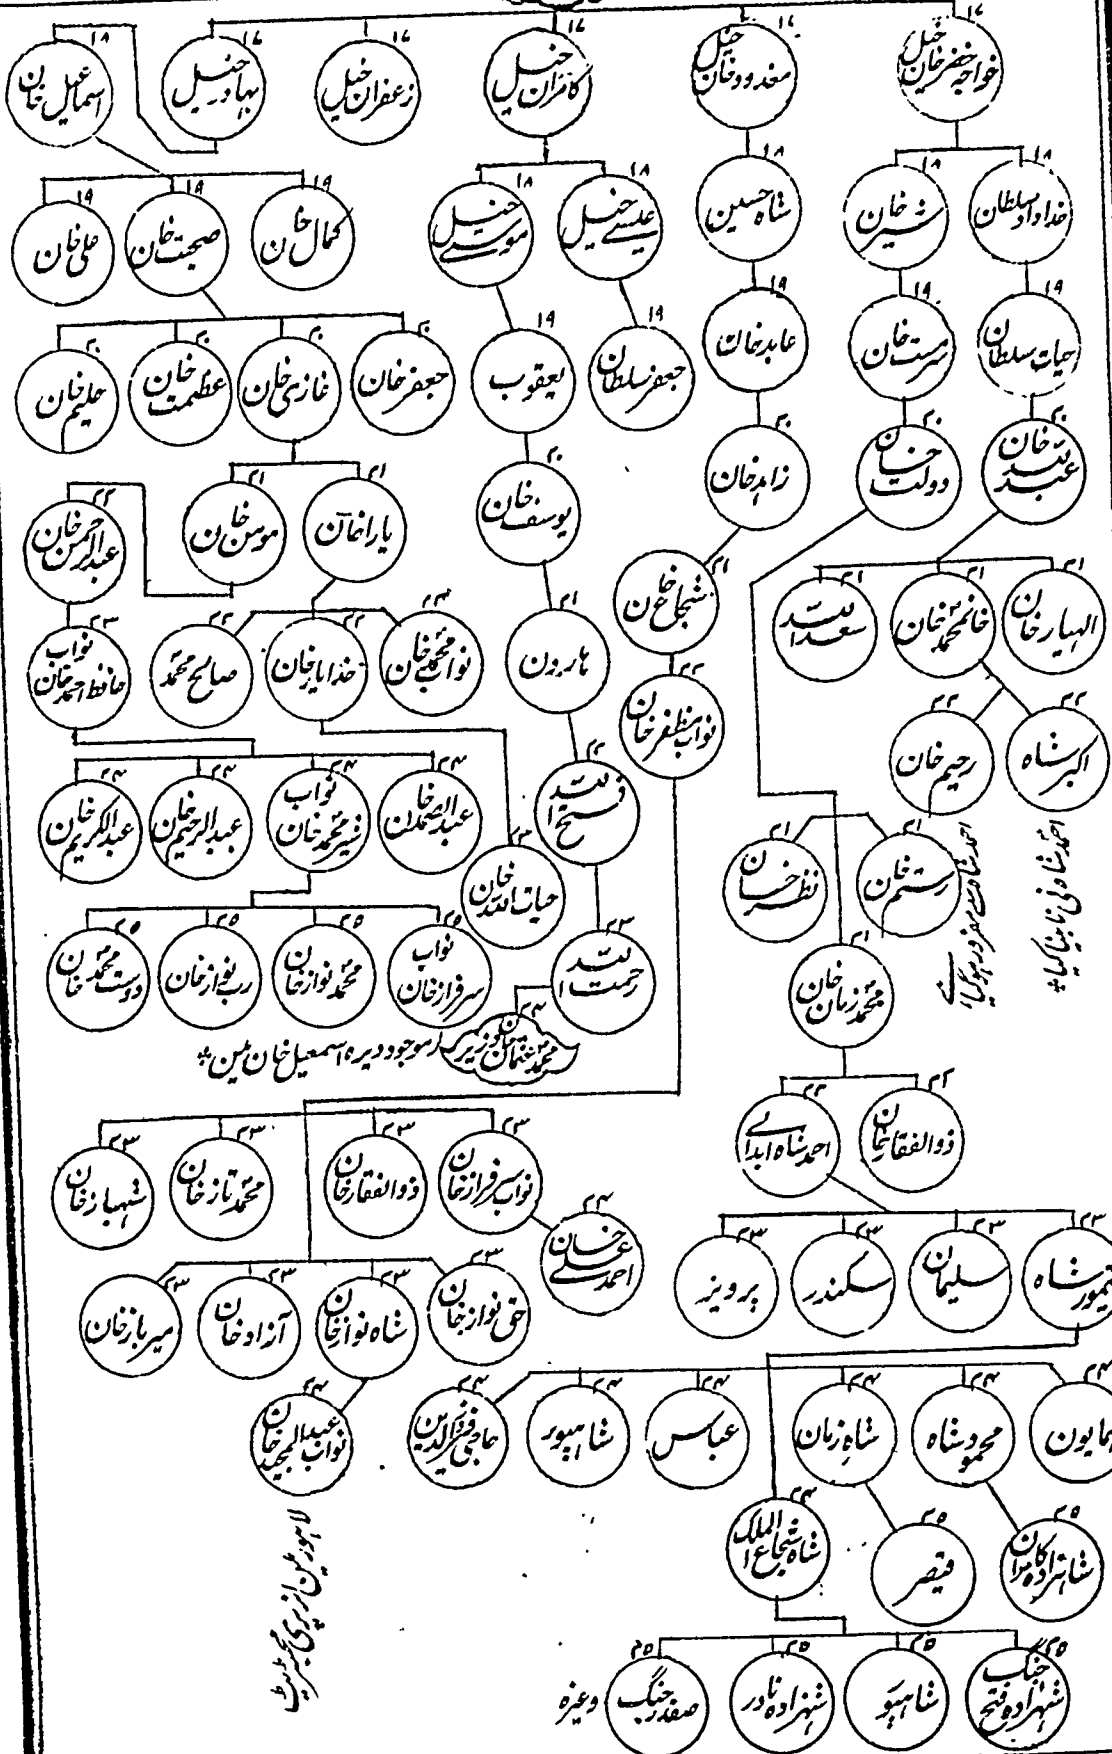 ۱۷ خواجہ خضر خان خیل
۱۷ مغدود خان خیل
۱۷ کامران خیل
۱۷ زعفران خیل
۱۷ بہادر خیل
۱۸ اسماعیل خان
۱۸ خداداد سلطان
۱۸ شیر خان
۱۸ شاہ حسین
۱۸ عیسے خیل
۱۸ موسے خیل
۱۹ کمال خان
۱۹ صحبت خان
۱۹ علی خان
۱۹ حیات سلطان
۱۹ سرمست خان
۱۹ عابد خان
۱۹ جعفر سلطان
۱۹ یعقوب
۲۰ جعفر خان
۲۰ غازی خان
۲۰ عظمت خان
۲۰ حلیم خان
۲۰ عبداللہ خان
۲۰ دولت خان
۲۰ زاہد خان
۲۰ یوسف خان
۲۱ یارا خان
۲۱ مومن خان
۲۲ عبدالرحمن خان
۲۱ الہیار خان
۲۱ خانمحمد خان
۲۱ سعداللہ
۲۱ شجاع خان
۲۱ ہارون
۲۳ نواب محمد خان
۲۲ خدایار خان
۲۲ صالح محمد
۲۳ نواب حافظ احمد خان
۲۲ اکبر شاہ
۲۲ رحیم خان
۲۲ نواب مظفر خان
۲۲ فتح اللہ
۲۴ عبدالصمد خان
۲۴ نواب شیر محمد خان
۲۴ عبدالرحیم خان
۲۴ عبدالکریم خان
احمد شاہ نی نابینا کیا
احمد شاہ سے مفرور ہو گیا
۲۱ رستم خان
۲۱ نظر خان
۲۳ حیات اللہ خان
۲۱ محمد زمان خان
۲۳ رحمت اللہ
۲۵ نواب سرفراز خان
۲۵ محمد نواز خان
۲۵ رب نواز خان
۲۵ دوست محمد خان
۲۴ محمد عثمان خان وزیر
موجود دیرہ اسمعیل خان مین
۲۲ ذوالفقار خان
۲۲ احمد شاہ ابدالے
۲۳ نواب سرفراز خان
۲۳ ذوالفقار خان
۲۳ محمد تاز خان
۲۳ شہباز خان
۲۴ احمد علے خان
۲۳ تیمور شاہ
۲۳ سلیمان
۲۳ سکندر
۲۳ پرویز
۲۳ حق نواز خان
۲۳ شاہ نواز خان
۲۳ آزاد خان
۲۳ میر باز خان
۲۴ ہمایون
۲۴ محمود شاہ
۲۴ شاہ زمان
۲۴ عباس
۲۴ شاہپور
۲۴ حاجی فیروزالدین
۲۴ نواب عبدالمجید خان
لاہور مین انریری مجسٹریٹ
۲۴ شاہ شجاع الملک
۲۵ شاہزادہ کامران
۲۵ قیصر
۲۵ شہزادہ فتح جنگ
۲۵ شاہپو
۲۵ شہزادہ نادر
۲۵ صفدر جنگ
وغیرہ